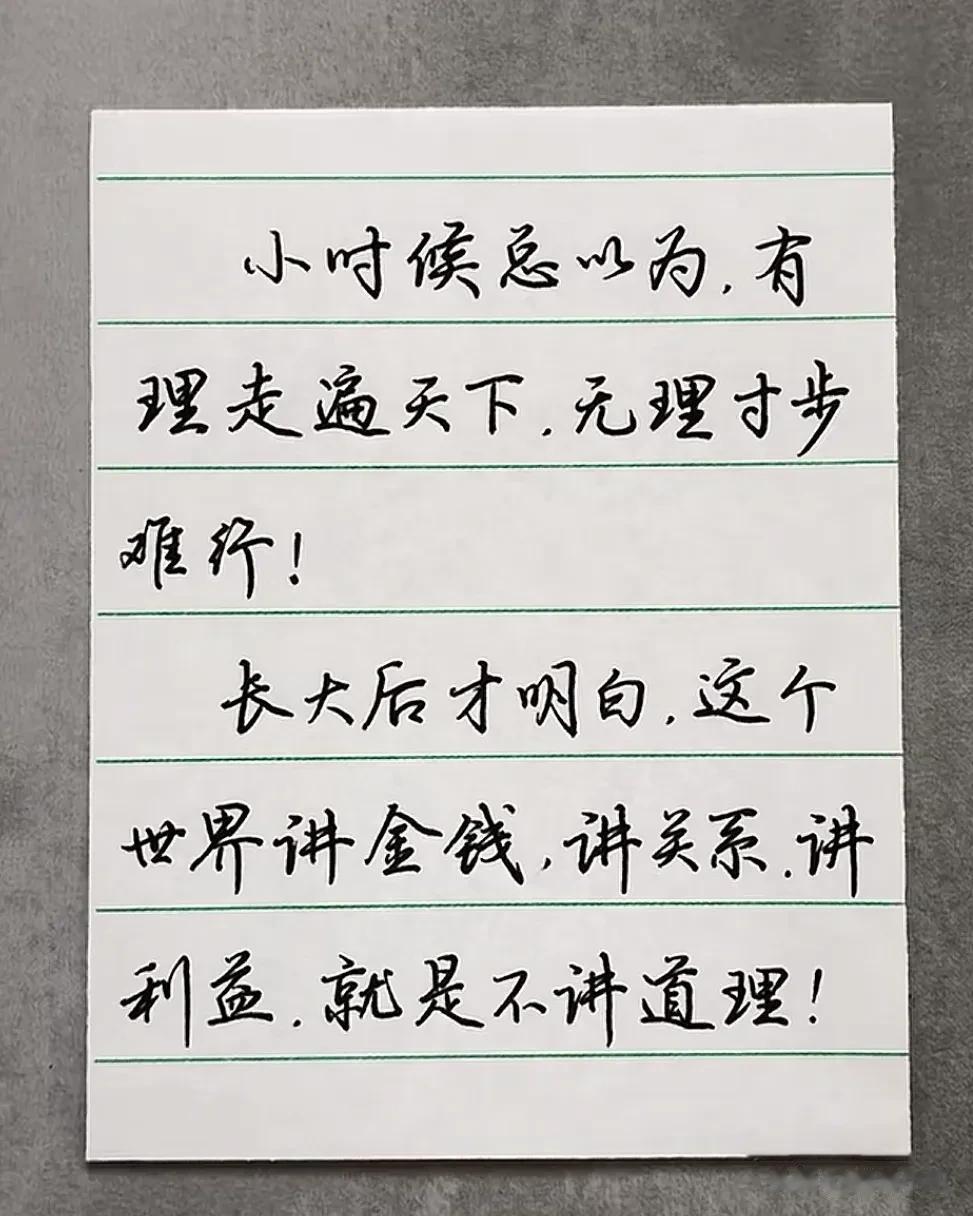 小时候总以为,有
理走遍天下,无理寸步
难行!
长大后才明白,这个
世界讲金钱,讲关系,讲
利益,就是不讲道理!